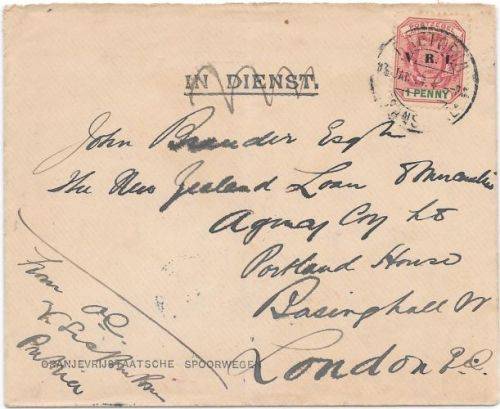 POSTZEGEL
V. R. I.
1 PENNY
IN DIENST.
John Brander Esqre
The New Zealand Loan & Mercantile
Agency Coy Ld
Portland House
Basinghall St
London E.C.
From
Pretoria
ORANJEVRIJSTAATSCHE SPOORWEGEN